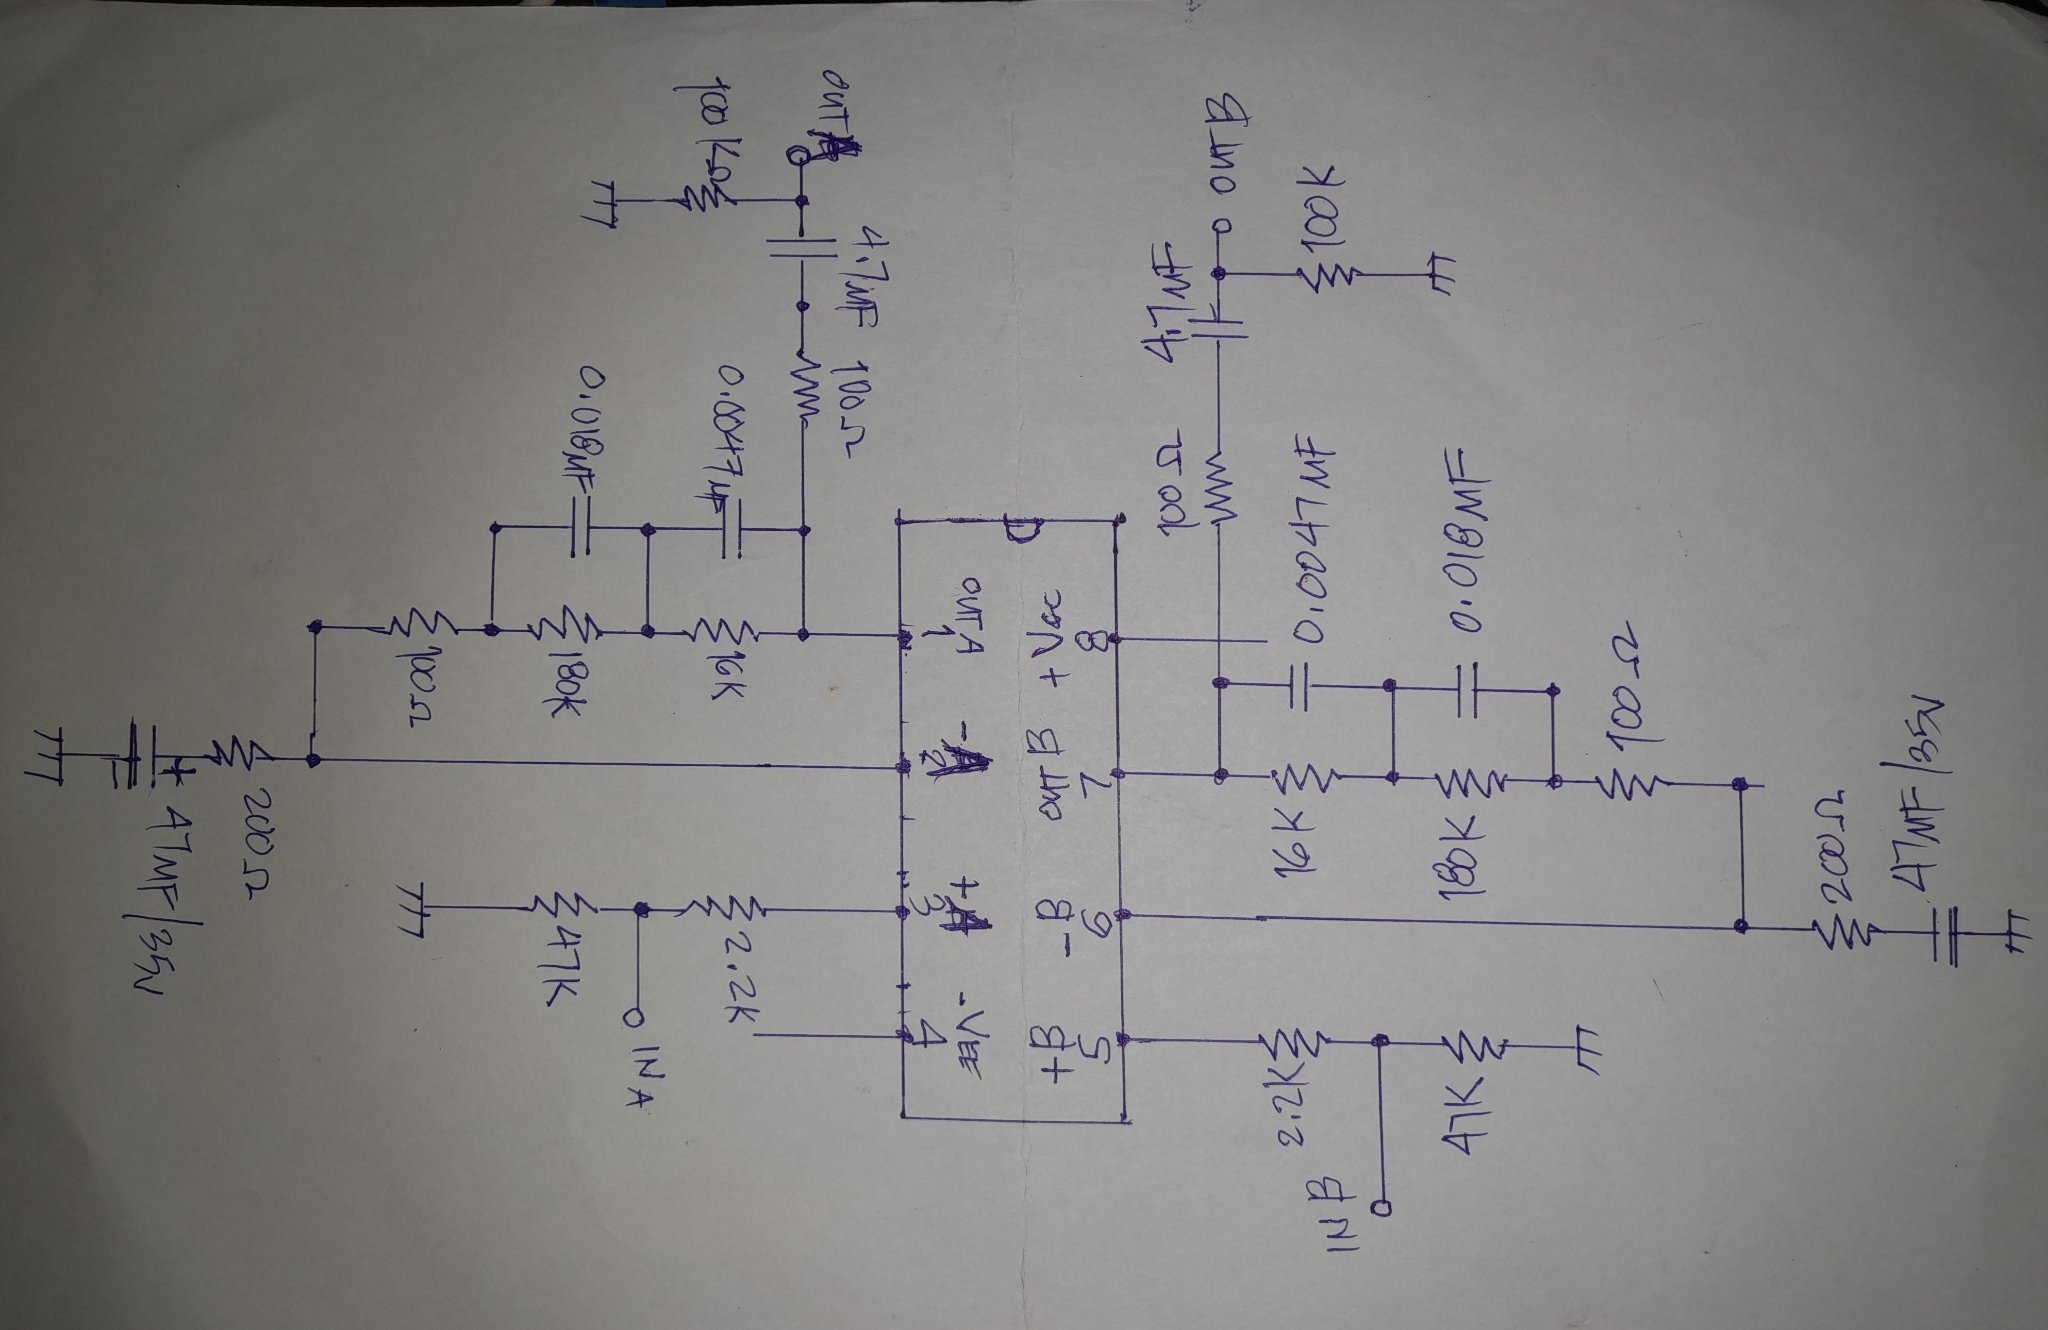 OUT A
100 KΩ
4.7MF
100Ω
0.018MF
0.0047MF
100Ω
180K
16K
200Ω
47MF/35V
47K
2.2K
IN A
OUT A
1
-A
2
+A
3
-VEE
4
+Vcc
8
OUT B
7
-B
6
+B
5
OUT B
100K
4.7MF
100Ω
0.0047MF
0.018MF
100Ω
16K
180K
200Ω
47MF/35V
2.2K
47K
IN B